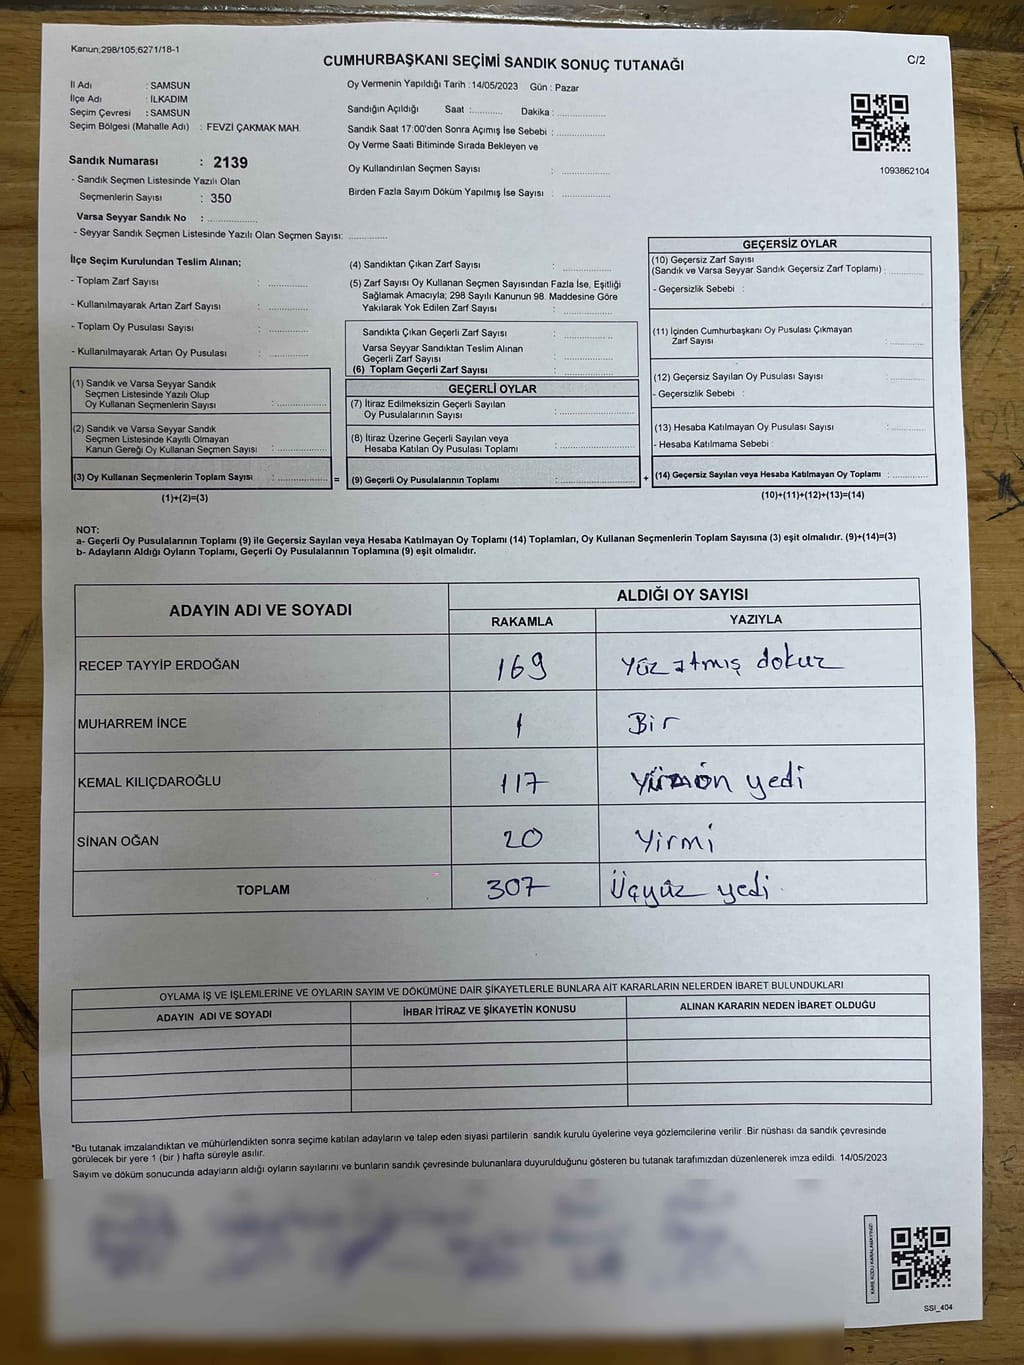 Kanun;298/105;6271/18-1
C/2
CUMHURBAŞKANI SEÇİMİ SANDIK SONUÇ TUTANAĞI
İl Adı : SAMSUN
İlçe Adı : İLKADIM
Seçim Çevresi : SAMSUN
Seçim Bölgesi (Mahalle Adı) : FEVZİ ÇAKMAK MAH.
Sandık Numarası : 2139
- Sandık Seçmen Listesinde Yazılı Olan
Seçmenlerin Sayısı : 350
Varsa Seyyar Sandık No : ................
- Seyyar Sandık Seçmen Listesinde Yazılı Olan Seçmen Sayısı: ............
Oy Vermenin Yapıldığı Tarih : 14/05/2023 Gün : Pazar
Sandığın Açıldığı Saat :........... Dakika : ................
Sandık Saat 17:00'den Sonra Açımış İse Sebebi : ................
Oy Verme Saati Bitiminde Sırada Bekleyen ve
Oy Kullandırılan Seçmen Sayısı : ................
Birden Fazla Sayım Döküm Yapılmış İse Sayısı : ................
1093862104
İlçe Seçim Kurulundan Teslim Alınan;
- Toplam Zarf Sayısı : .............
- Kullanılmayarak Artan Zarf Sayısı : .............
- Toplam Oy Pusulası Sayısı : .............
- Kullanılmayarak Artan Oy Pusulası : .............
(1) Sandık ve Varsa Seyyar Sandık
Seçmen Listesinde Yazılı Olup
Oy Kullanan Seçmenlerin Sayısı : ................
(2) Sandık ve Varsa Seyyar Sandık
Seçmen Listesinde Kayıtlı Olmayan
Kanun Gereği Oy Kullanan Seçmen Sayısı : ................
(3) Oy Kullanan Seçmenlerin Toplam Sayısı : ................
(1)+(2)=(3)
=
(4) Sandıktan Çıkan Zarf Sayısı : ................
(5) Zarf Sayısı Oy Kullanan Seçmen Sayısından Fazla İse, Eşitliği
Sağlamak Amacıyla; 298 Sayılı Kanunun 98. Maddesine Göre
Yakılarak Yok Edilen Zarf Sayısı : ................
Sandıkta Çıkan Geçerli Zarf Sayısı : ................
Varsa Seyyar Sandıktan Teslim Alınan
Geçerli Zarf Sayısı : ................
(6) Toplam Geçerli Zarf Sayısı : ................
GEÇERLİ OYLAR
(7) İtiraz Edilmeksizin Geçerli Sayılan
Oy Pusulalarının Sayısı : ................
(8) İtiraz Üzerine Geçerli Sayılan veya
Hesaba Katılan Oy Pusulası Toplamı : ................
(9) Geçerli Oy Pusulalarının Toplamı : ................
+
GEÇERSİZ OYLAR
(10) Geçersiz Zarf Sayısı
(Sandık ve Varsa Seyyar Sandık Geçersiz Zarf Toplamı) : ...........
- Geçersizlik Sebebi :
(11) İçinden Cumhurbaşkanı Oy Pusulası Çıkmayan
Zarf Sayısı : ...........
(12) Geçersiz Sayılan Oy Pusulası Sayısı : ...........
- Geçersizlik Sebebi :
(13) Hesaba Katılmayan Oy Pusulası Sayısı : ...........
- Hesaba Katılmama Sebebi :
(14) Geçersiz Sayılan veya Hesaba Katılmayan Oy Toplamı : ...........
(10)+(11)+(12)+(13)=(14)
NOT:
a- Geçerli Oy Pusulalarının Toplamı (9) ile Geçersiz Sayılan veya Hesaba Katılmayan Oy Toplamı (14) Toplamları, Oy Kullanan Seçmenlerin Toplam Sayısına (3) eşit olmalıdır. (9)+(14)=(3)
b- Adayların Aldığı Oyların Toplamı, Geçerli Oy Pusulalarının Toplamına (9) eşit olmalıdır.
ADAYIN ADI VE SOYADI
ALDIĞI OY SAYISI
RAKAMLA YAZIYLA
RECEP TAYYİP ERDOĞAN 169 Yüz atmış dokuz
MUHARREM İNCE 1 Bir
KEMAL KILIÇDAROĞLU 117 Yüzon yedi
SİNAN OĞAN 20 Yirmi
TOPLAM 307 Üçyüz yedi
OYLAMA İŞ VE İŞLEMLERİNE VE OYLARIN SAYIM VE DÖKÜMÜNE DAİR ŞİKAYETLERLE BUNLARA AİT KARARLARIN NELERDEN İBARET BULUNDUKLARI
ADAYIN ADI VE SOYADI İHBAR İTİRAZ VE ŞİKAYETİN KONUSU ALINAN KARARIN NEDEN İBARET OLDUĞU
*Bu tutanak imzalandıktan ve mühürlendikten sonra seçime katılan adayların ve talep eden siyasi partilerin sandık kurulu üyelerine veya gözlemcilerine verilir. Bir nüshası da sandık çevresinde
görülecek bir yere 1 (bir ) hafta süreyle asılır.
Sayım ve döküm sonucunda adayların aldığı oyların sayılarını ve bunların sandık çevresinde bulunanlara duyurulduğunu gösteren bu tutanak tarafımızdan düzenlenerek imza edildi. 14/05/2023
KARE KODU KARALAMAYINIZ!
SSI_404